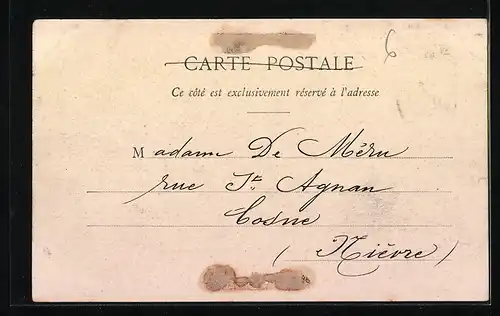 6
CARTE POSTALE
Ce côté est exclusivement réservé à l'adresse
Madame De Méru
rue St. Agnan
Cosne
(Nièvre)